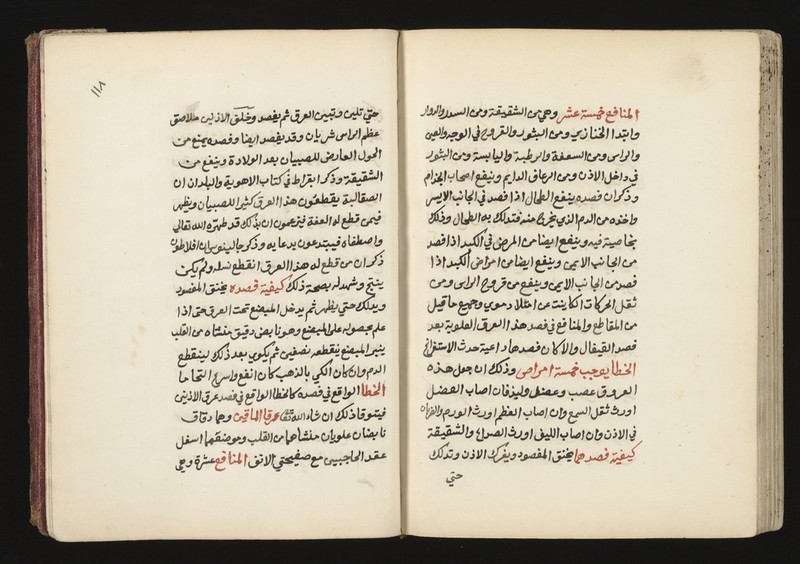 المنافع خمسة عشر وهي من الشقيقة ومن السدر والدوار
وابتدا الخنازير ومن البثور والقروح في الوجه والعين
والراس ومن السعفة والرطبة واليابسة ومن البثور
في داخل الاذن ومن الرعاف الدايم وينفع اصحاب الجذام
وذكر ان فصده ينفع الطحال اذا فصد في الجانب الايسر
واخذه من الدم الذي يخرج منه فتدلك به الطحال وذلك
بخاصية فيه وينفع ايضا من المرض في الكبد اذا فصد
من الجانب الايمن وينفع ايضا من امراض الكبد اذا
فصد من الجانب الايمن وينفع من قروح الراس ومن
ثقل الحركات الكاينة عن امتلاء دموي وجميع ما قيل
من المقاطع والمنافع في فصد هذا العرق العلوية بعد
فصد القيفال والا كان فصدها داعية حدث الاستفراغ
الخطا يوجب خمسة امراض وذلك ان حول هذه
العروق عصب وعضل وليف فان اصاب العضل
اورث ثقل السمع وان اصاب العظم اورث الورم
في الاذن وان اصاب الليف اورث الصداع والشقيقة
كيفية فصدهما يخنق المفصود ويفرك الاذن وتدلك
حتي
١١٨
حتي تلين وتبين العرق ثم يفصد وخلف الاذنين ملاصق
عظم الراس شريان وقد يفصد ايضا وفصده يمنع من
الحول العارض للصبيان بعد الولادة وينفع من
الشقيقة وذكر ابقراط في كتاب الاهوية والبلدان ان
الصقالبة يقطعون هذا العرق كثيرا للصبيان ويظهر
فيمن قطع له العفة فيزعمون ان بذلك قد طهره الله تعالي
واصطفاه فيبتدعون بدعا به وذكر جالينوس ان افلاطون
ذكر ان من قطع له هذا العرق انقطع نسله ولم يكن
ينتج وشهد له بصحة ذلك كيفية فصده يخنق المفصود
ويدلك حتي يظهر ثم يدخل المبضع تحت العرق حتي اذا
علم بحصوله علي المبضع وهو نابض دقيق منشاه من القلب
ينبر المبضع بقطعه نصفين ثم يكوي بعد ذلك لينقطع
الدم وان كان الكي بالذهب كان انفع واسرع التحاما
الخطا الواقع في فصده كالخطا الواقع في فصد عرق الاذنين
فيتوقا ذلك ان شاء الله تعالي عرقا الماقين وهما دقاق
نابضان علويان منشاهما من القلب وموضعهما اسفل
عقد الحاجبين مع صفيحتي الانف المنافع عشرة وهي